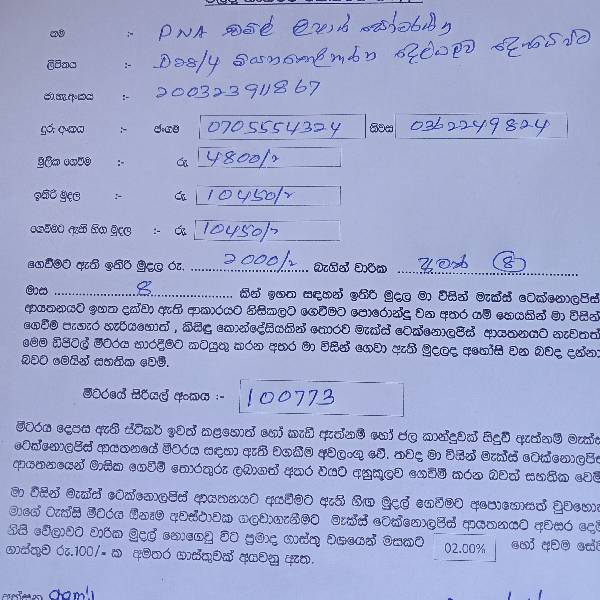 නම :- PNA චමිල්
ලිපිනය :- D28/4
ජා.හැ.අංකය :- 200323911867
දුර අංකය :- ජංගම 0705554324 නිවස 0362249824
මූලික ගෙවීම :- රු 4800/=
ඉතිරි මුදල :- රු 10450/=
ගෙවීමට ඇති හිඟ මුදල :- රු 10450/=
ගෙවීමට ඇති ඉතිරි මුදල රු. 2000/= බැගින් වාරික (8)
මාස 8 කින් ඉහත සඳහන් ඉතිරි මුදල මා විසින් මැක්ස් ටෙක්නොලජිස්
ආයතනයට ඉහත දක්වා ඇති ආකාරයට නිසිකලට ගෙවීමට පොරොන්දු වන අතර යම් හෙයකින් මා විසින්
ගෙවීම පැහැර හැරියහොත් , කිසිදු කොන්දේසියකින් තොරව මැක්ස් ටෙක්නොලජිස් ආයතනයට නැවතත්
මෙම ඩිජිටල් මීටරය භාරදීමට කටයුතු කරන අතර මා විසින් ගෙවා ඇති මුදලද අහෝසි වන බවද දන්නා
බවට මෙයින් සහතික වෙමි.
මීටරයේ සීරියල් අංකය :- 100773
මීටරය දෙපස ඇති ස්ටිකර් ඉවත් කළහොත් හෝ කැඩී ඇත්නම් හෝ ජල කාන්දුවක් සිදුවී ඇත්නම් මැක්ස්
ටෙක්නොලජිස් ආයතනයේ මීටරය සඳහා ඇති වගකීම අවලංගු වේ. තවද මා විසින් මැක්ස් ටෙක්නොලජිස්
ආයතනයෙන් මාසික ගෙවීම් තොරතුරු ලබාගත් අතර එයට අනුකූලව ගෙවීම් කරන බවත් සහතික වෙමි
මා විසින් මැක්ස් ටෙක්නොලජිස් ආයතනයට අයවීමට ඇති හිඟ මුදල් ගෙවීමට අපොහොසත් වුවහොත්
මාගේ ටැක්සි මීටරය ඕනෑම අවස්ථාවක ගලවාගැනීමට මැක්ස් ටෙක්නොලජිස් ආයතනයට අවසර දෙමි
නිසි වේලාවට වාරික මුදල් නොගෙවූ විට ප්‍රමාද ගාස්තු වශයෙන් මසකට 02.00% හෝ අවම සේවා
ගාස්තුව රු.100/= ක අමතර ගාස්තුවක් අයවනු ඇත.